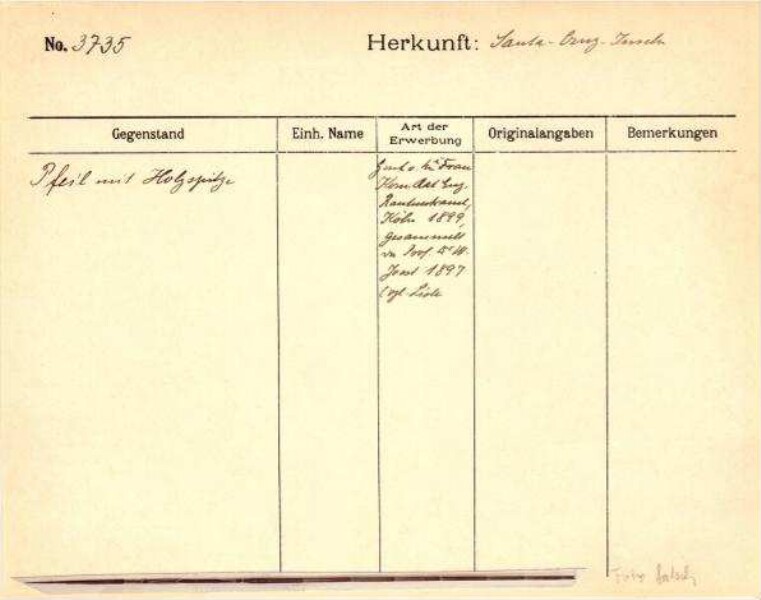 No. 3735 Herkunft: Santa-Cruz-Inseln
Gegenstand Einh. Name Art der Erwerbung Originalangaben Bemerkungen
Pfeil mit Holzspitze
Frau
Kom Rat Eug.
Rautenstrauch,
Köln 1899,
gesammelt
von Prof. Dr W.
Joest 1897
(vgl. Liste
Foto